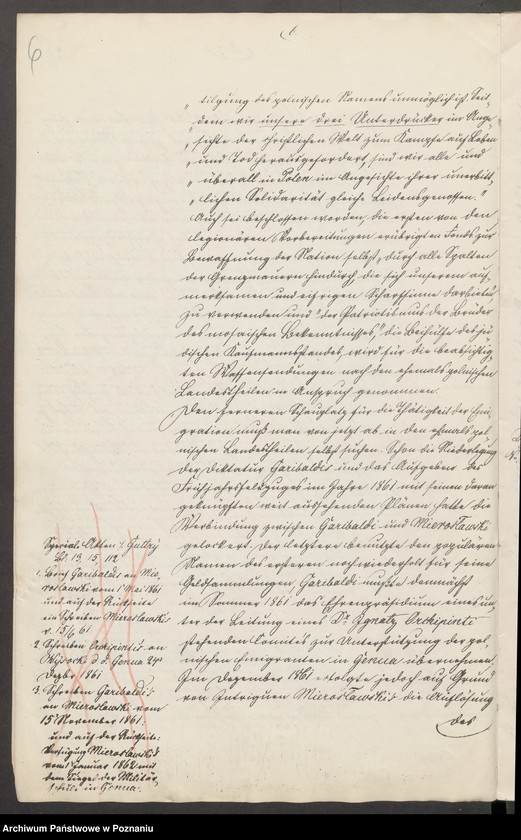 6
6.
„tilgung des polnischen Namens unmöglich ist. Seit„
„dem wir unsere drei Unterdrücker im Ange„
„sichte der christlichen Welt zum Kampfe auf Leben
„und Tod herausgefordert, sind wir alle und
„überall in Polen im Angesichte ihrer unerbitt„
„lichen Solidarität gleiche Leidensgenossen."
Auch sei beschlossen worden, die ersten von den
legionären Vorbereitungen erübrigten Fonds zur
Bewaffnung der Nation selbst „durch alle Spalten
der Grenzmauern hindurch, die sich unserem auf„
merksamen und eifrigen Scharfsinne darbieten
zu verwenden und „der Patriotismus der Brüder
des mosaischen Bekenntnisses", die Beihülfe des jü„
dischen Kaufmannsstandes, wird für die beabsichtig„
ten Waffensendungen nach den ehemals polnischen
Landestheilen in Anspruch genommen.
Den ferneren Schauplatz für die Thätigkeit der Emi„
gration muß man von jetzt ab in den ehemals pol„
nischen Landestheilen selbst suchen. Schon die Niederlegung
der Diktatur Garibaldis und das Aufgeben des
Frühjahrsfeldzuges im Jahre 1861 mit seinen daran
geknüpften weit aussehenden Plänen hatte die
Verbindung zwischen Garibaldi und Mieroslawski
gelockert. Der letztere benutzte den populären
Namen des ersteren noch wiederholt für seine
Geldsammlungen, Garibaldi mußte demnächst
im Sommer 1861 das Ehrenpräsidium eines un„
ter der Leitung eines Dr. Ignatz Orchipinti
stehenden Comités zur Unterstützung der pol„
nischen Emigranten in Genua übernehmen.
Im Dezember 1861 erfolgte jedoch auf Grund
von Intriguen Mieroslawski's die Auflösung
des
Spezial-Akten v. Guttry
Bl. 13, 15, 112
1. Brief Garibaldis an Mie„
roslawski vom 1 Mai 1861
und auf der Rückseite
ein Schreiben Mieroslawski's
v. 15/6 61
2. Schreiben Orchipinti's an
d. d. Genua 24ten
Dezbr 1861
3. Schreiben Garibaldi's
an Mieroslawski vom
15 November 1861.
und auf der Rückseite:
Verfügung Mieroslawski's
vom 1 Januar 1862 mit
dem Siegel der Militär„
schule in Genua.
Archiwum Państwowe w Poznaniu